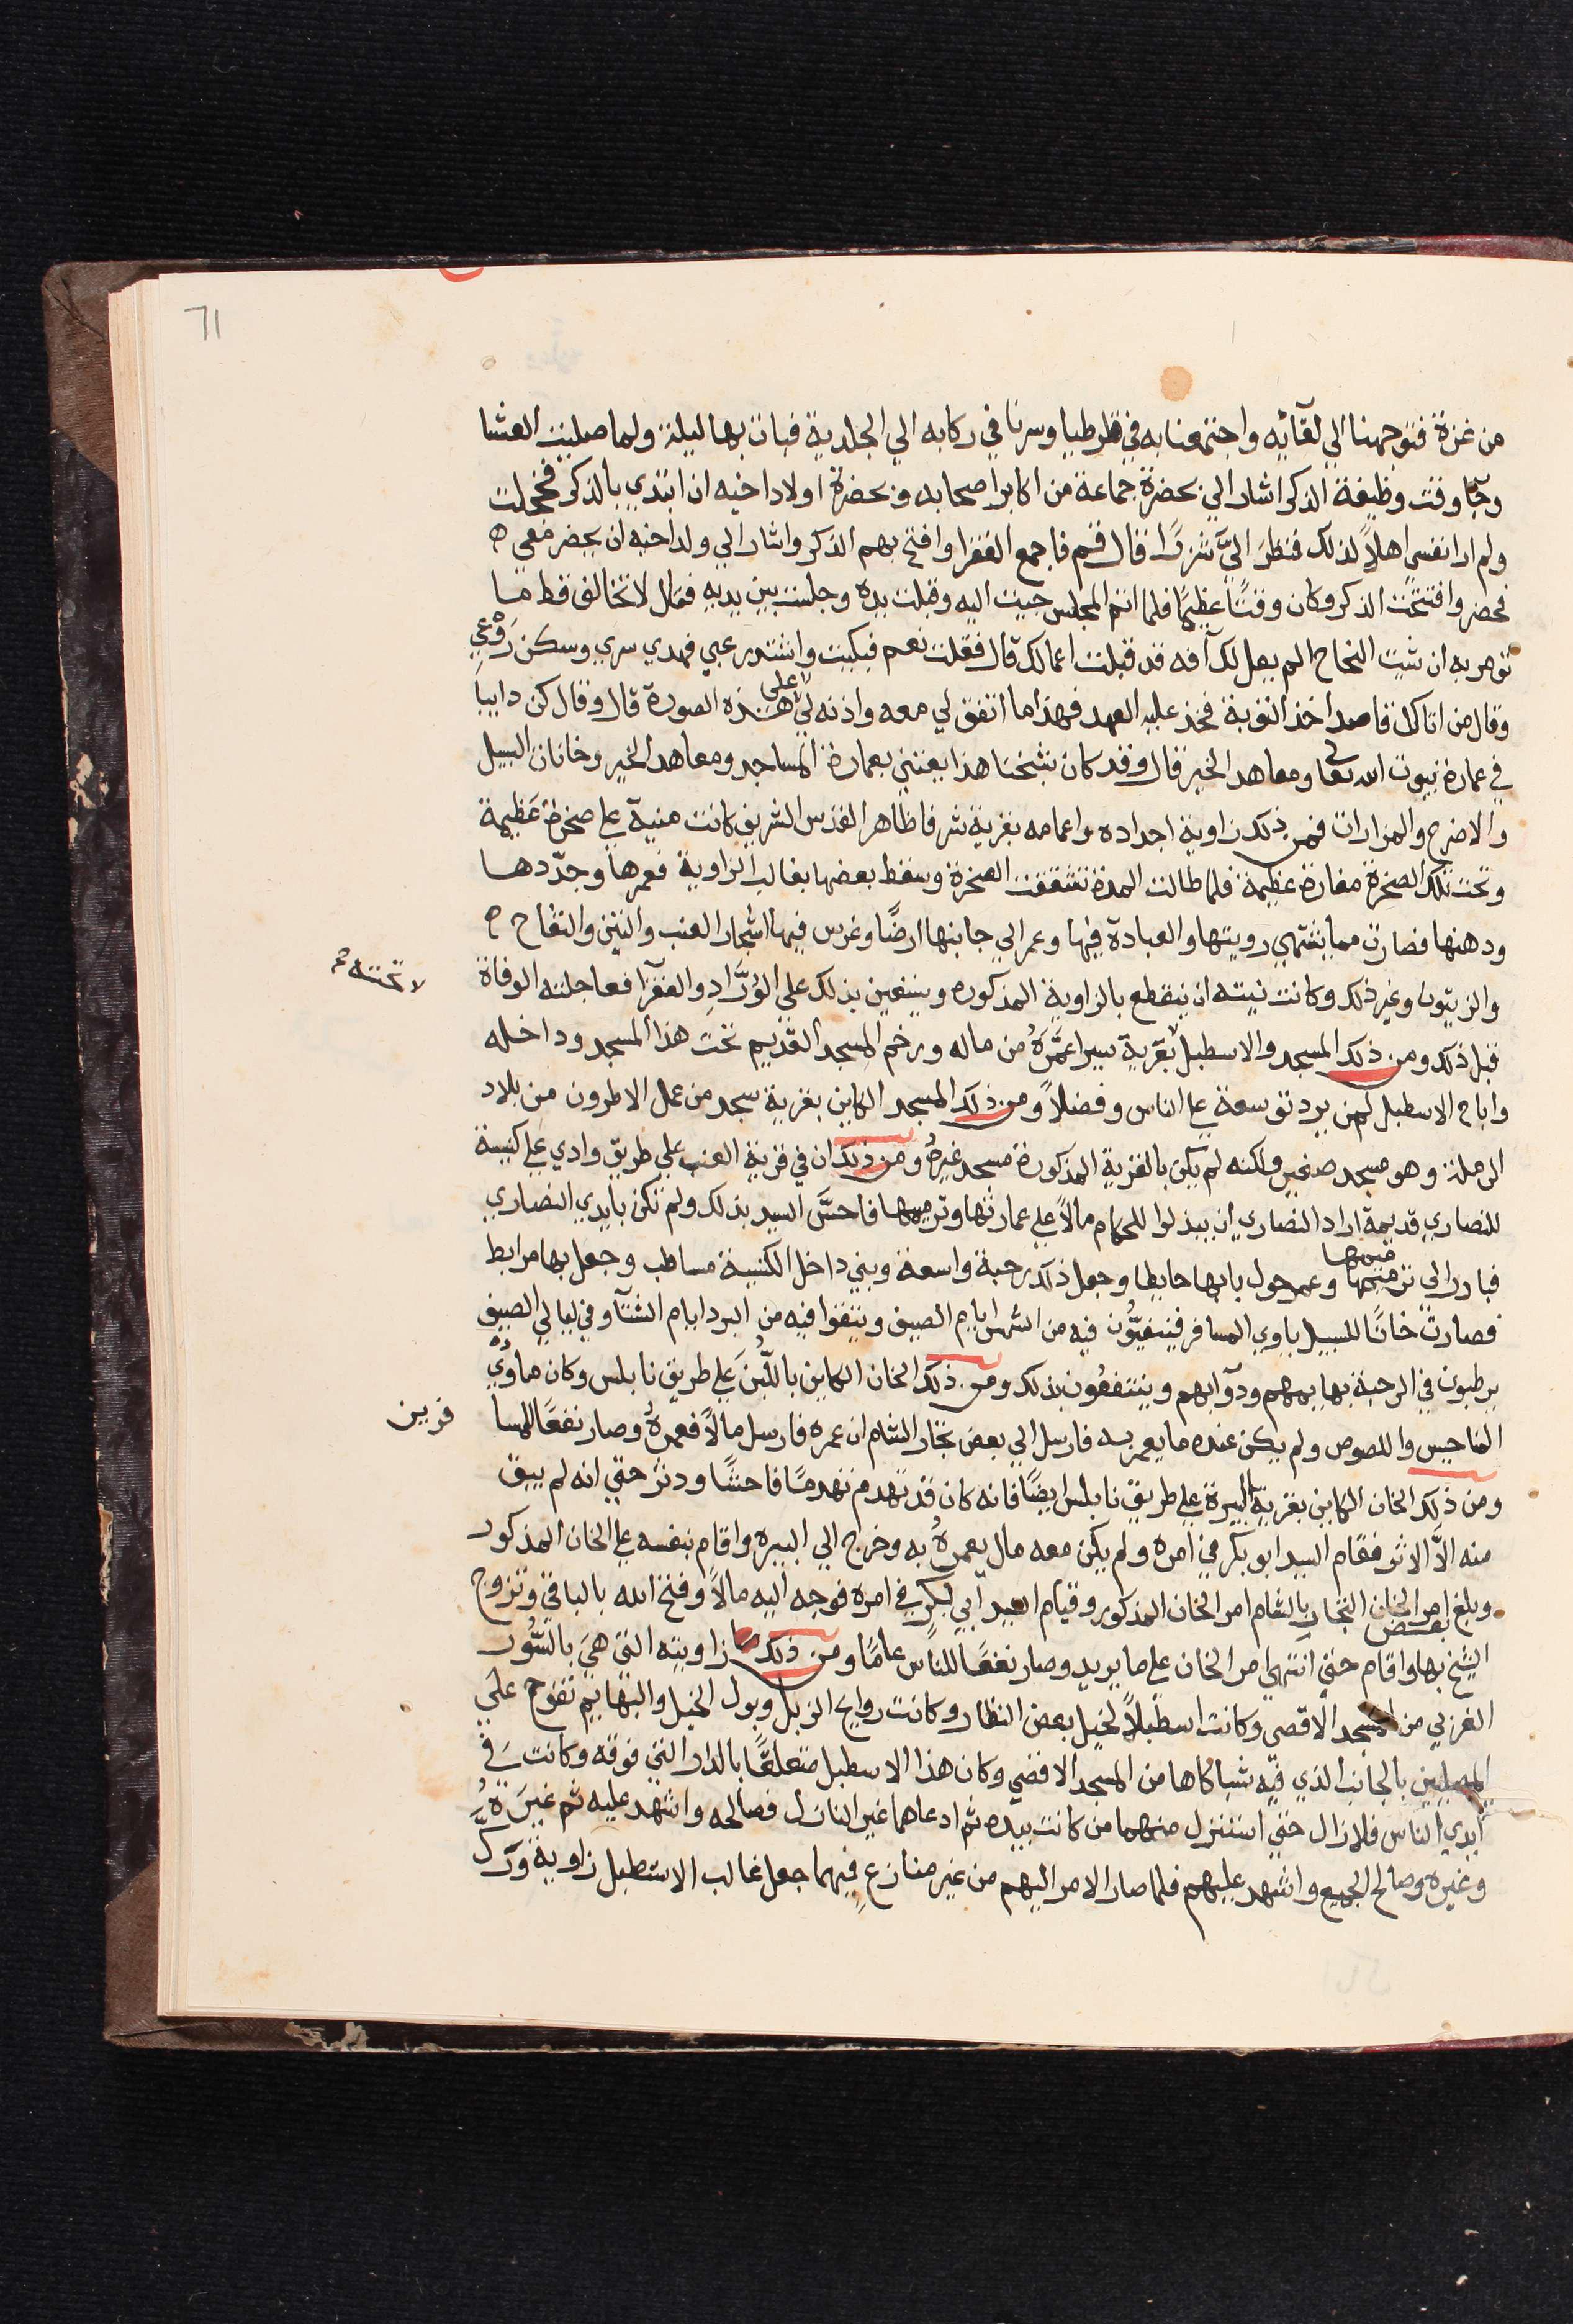 61
من غزة فتوجهنا الي لقآئه واجتمعنا به في قرطيا وسرنا في ركابه الي الجلدية فبات بها ليلة ولما صليت العشا
وجآ وقت وظيفة الذكر اشار الي بحضرة جماعة من اكابر اصحابه وبحضرة اولاد اخيه ان ابتدي بالذكر فخجلت
ولم ار نفسي اهلاً لذلك فنظر اليَّ شزرًا قال قم فاجمع الفقرا وافتح بهم الذكر واشار الي ولد اخيه ان يحضر معي
فحضر وافتتحت الذكر وكان وقتًا عظيمًا فلما انتم المجلس جيت اليه وقبلت يده وجلست بين يديه فقال لا تخالف قط ما
تومر به ان شيت النجاح الم يقل لك آفه قد قبلت اعمالك قال فقلت نعم فبكيت واشتد رعبي فهدي سري وسكن رَوْعي
وقال من اتاك قاصدا خذ التوبة فخذ عليه العهد فهذا ما اتفق لي معه واذنه لي على هذه الصورة قال وقال كن دايبا
في عمارة بيوت الله تعا ومعاهد الخير قال وقد كان شيخنا هذا يعتني بعمارة المساجد ومعاهد الخير وخانات السبيل
والاضرح والمزارات فمن ذلك زاوية اجداده واعمامه بقرية شرفا ظاهر القدس الشريف كانت مبنية علي صخرة عظيمة
وتحت تلك الصخرة مغارة عظيمة فلما طالت المدة تشققت الصخرة وسقط بعضها بغالب الزاوية فعمرها وجدّدها
ودهنها فصارت مما يشتهي رويتها والعبادة فيها وعمر الي جانبها ارضًا وغرس فيها اشجار العنب والتين والتفاح
والزيتون وغير ذلك وكانت نيته ان ينقطع بالزاوية المذكوره ويستعين بذلك على الوُرَّادِ والفقرآ فعاجلته الوفاة
قبل ذلك ومن ذلك المسجد والاسطبل بقرية سيرا عمَّرَهُ من ماله ورخم المسجد القديم تحت هذا المسجد وداخله
واباح الاسطبل لمن يرد توسعة علي الناس وفضلاً ومن ذلك المسجد الكاين بقرية سجد من عمل الاطرون من بلاد
الرملة وهو مسجد صغير ولكنه لم يكن بالقرية المذكورة مسجد غيره ومن ذلك ان في قرية العنب علي طريق وادي علي كنيسة
للنصاري قديمة اراد النصاري ان يبذلوا للحكام مالاً علي عمارتها وترميمها فاحسَّ السيد بذلك ولم تكن بايدي النصاري
فبادر الي ترميمها وعمر حول بابها حايطا وجعل ذلك رحبة واسعة وبني داخل الكنيسة مساطب وجعل بها مرابط
فصارت خانًا للسبيل ياوي المسافر فيتفيّون فيه من الشمس ايام الصيف ويتقوا فيه من البرد ايام الشتآ وفي ليالي الصيف
يرطبون في الرحبة بهايمهم ودوآبهم وينتفعون بذلك ومن ذلك الخان الكاين باللّبَن علي طريق نابلس وكان ماوي
المناحيس واللصوص ولم يكن عنده ما يعمر به فارسل الي بعض تجار الشام ان عمره فارسل مالاً فعمره وصار نفعًا للمسا
فرين
ومن ذلك الخان الكاين بقرية البيرة علي طريق نابلس ايضًا فانه كان قد تهدم تهدمًا فاحشًا ودثر حتي انه لم يبق
منه الاَّ الاثر فقام السيد ابو بكر في امره ولم يكن معه مال يعمره به وخرج الي البيره واقام بنفسه علي الخان المذكور
وبلغ بعض التجار بالشام امر الخان المذكور وقيام السيد ابي بكر في امره فوجه اليه مالاً وفتح الله بالباقي وتزوج
الشيخ بها واقام حتي انتهي امر الخان علي ما يريد وصار نفعًا للناس عامًا ومن ذلك زاويته التي هيَ بالسُّور
الغربي من المسجد الاقصي وكانت اسطبلاً لخيل بعض النظار وكانت روايح الزبل وبول الخيل والبهايم تفوح علي
المصليين بالجانب الذي فيه شباكاها من المسجد الاقصي وكان هذا الاسطبل متعلقًا بالدار التي فوقه وكانت في
ايدي الناس فلا زال حتي استنزل منهما من كانت بيده ثم ادعاهما غير النازل فصالحه واشهد عليه ثم غيرَهُ
وغيره وصالح الجميع واشهد عليهم فلما صار الامر اليهم من غير منازعٍ فيهما جعل غالب الاسطبل زاوية وترك